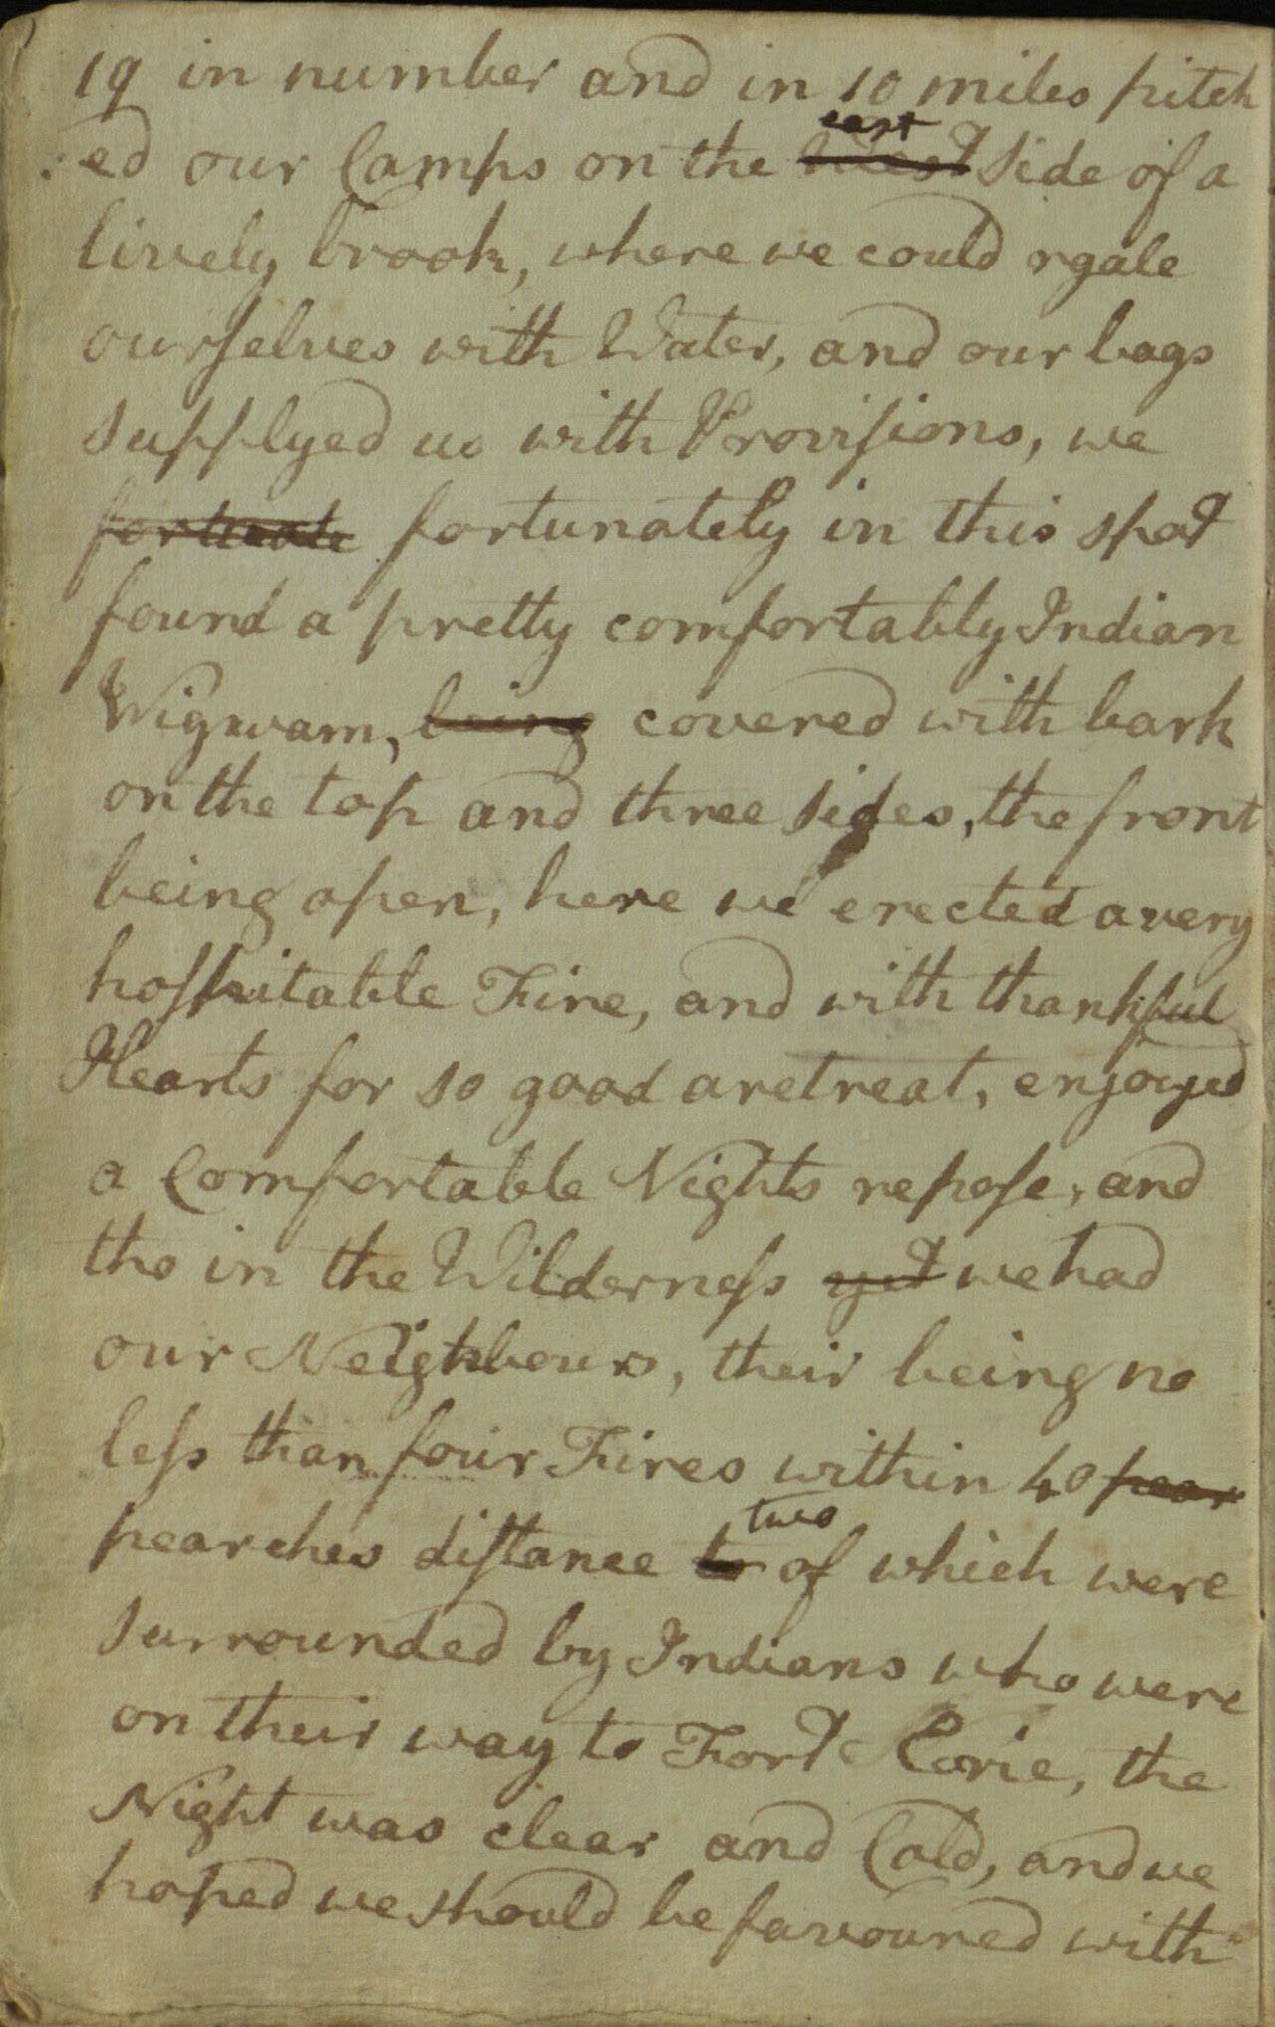 19 in number and in 10 miles pitch
:ed our Camps on the west east Side of a
lively brook, where we could rgale
ourselves with Water, and our bags
supplyed us with Provisions, we
fortunate fortunately in this spot
found a pretty comfortably Indian
Wigwam, being covered with bark
on the top and three sides, the front
being open, here we erected a very
hospitable Fire, and with thankful
Hearts for so good a retreat, enjoyed
a Comfortable Nights repose, and
tho in the Wilderness yet we had
our Neighbours, their being no
less than four Fires within 40 pear
pearches distance to two of which were
surrounded by Indians who were
on their way to Fort Erie, the
Night was clear and Cold, and we
hoped we should be favoured with